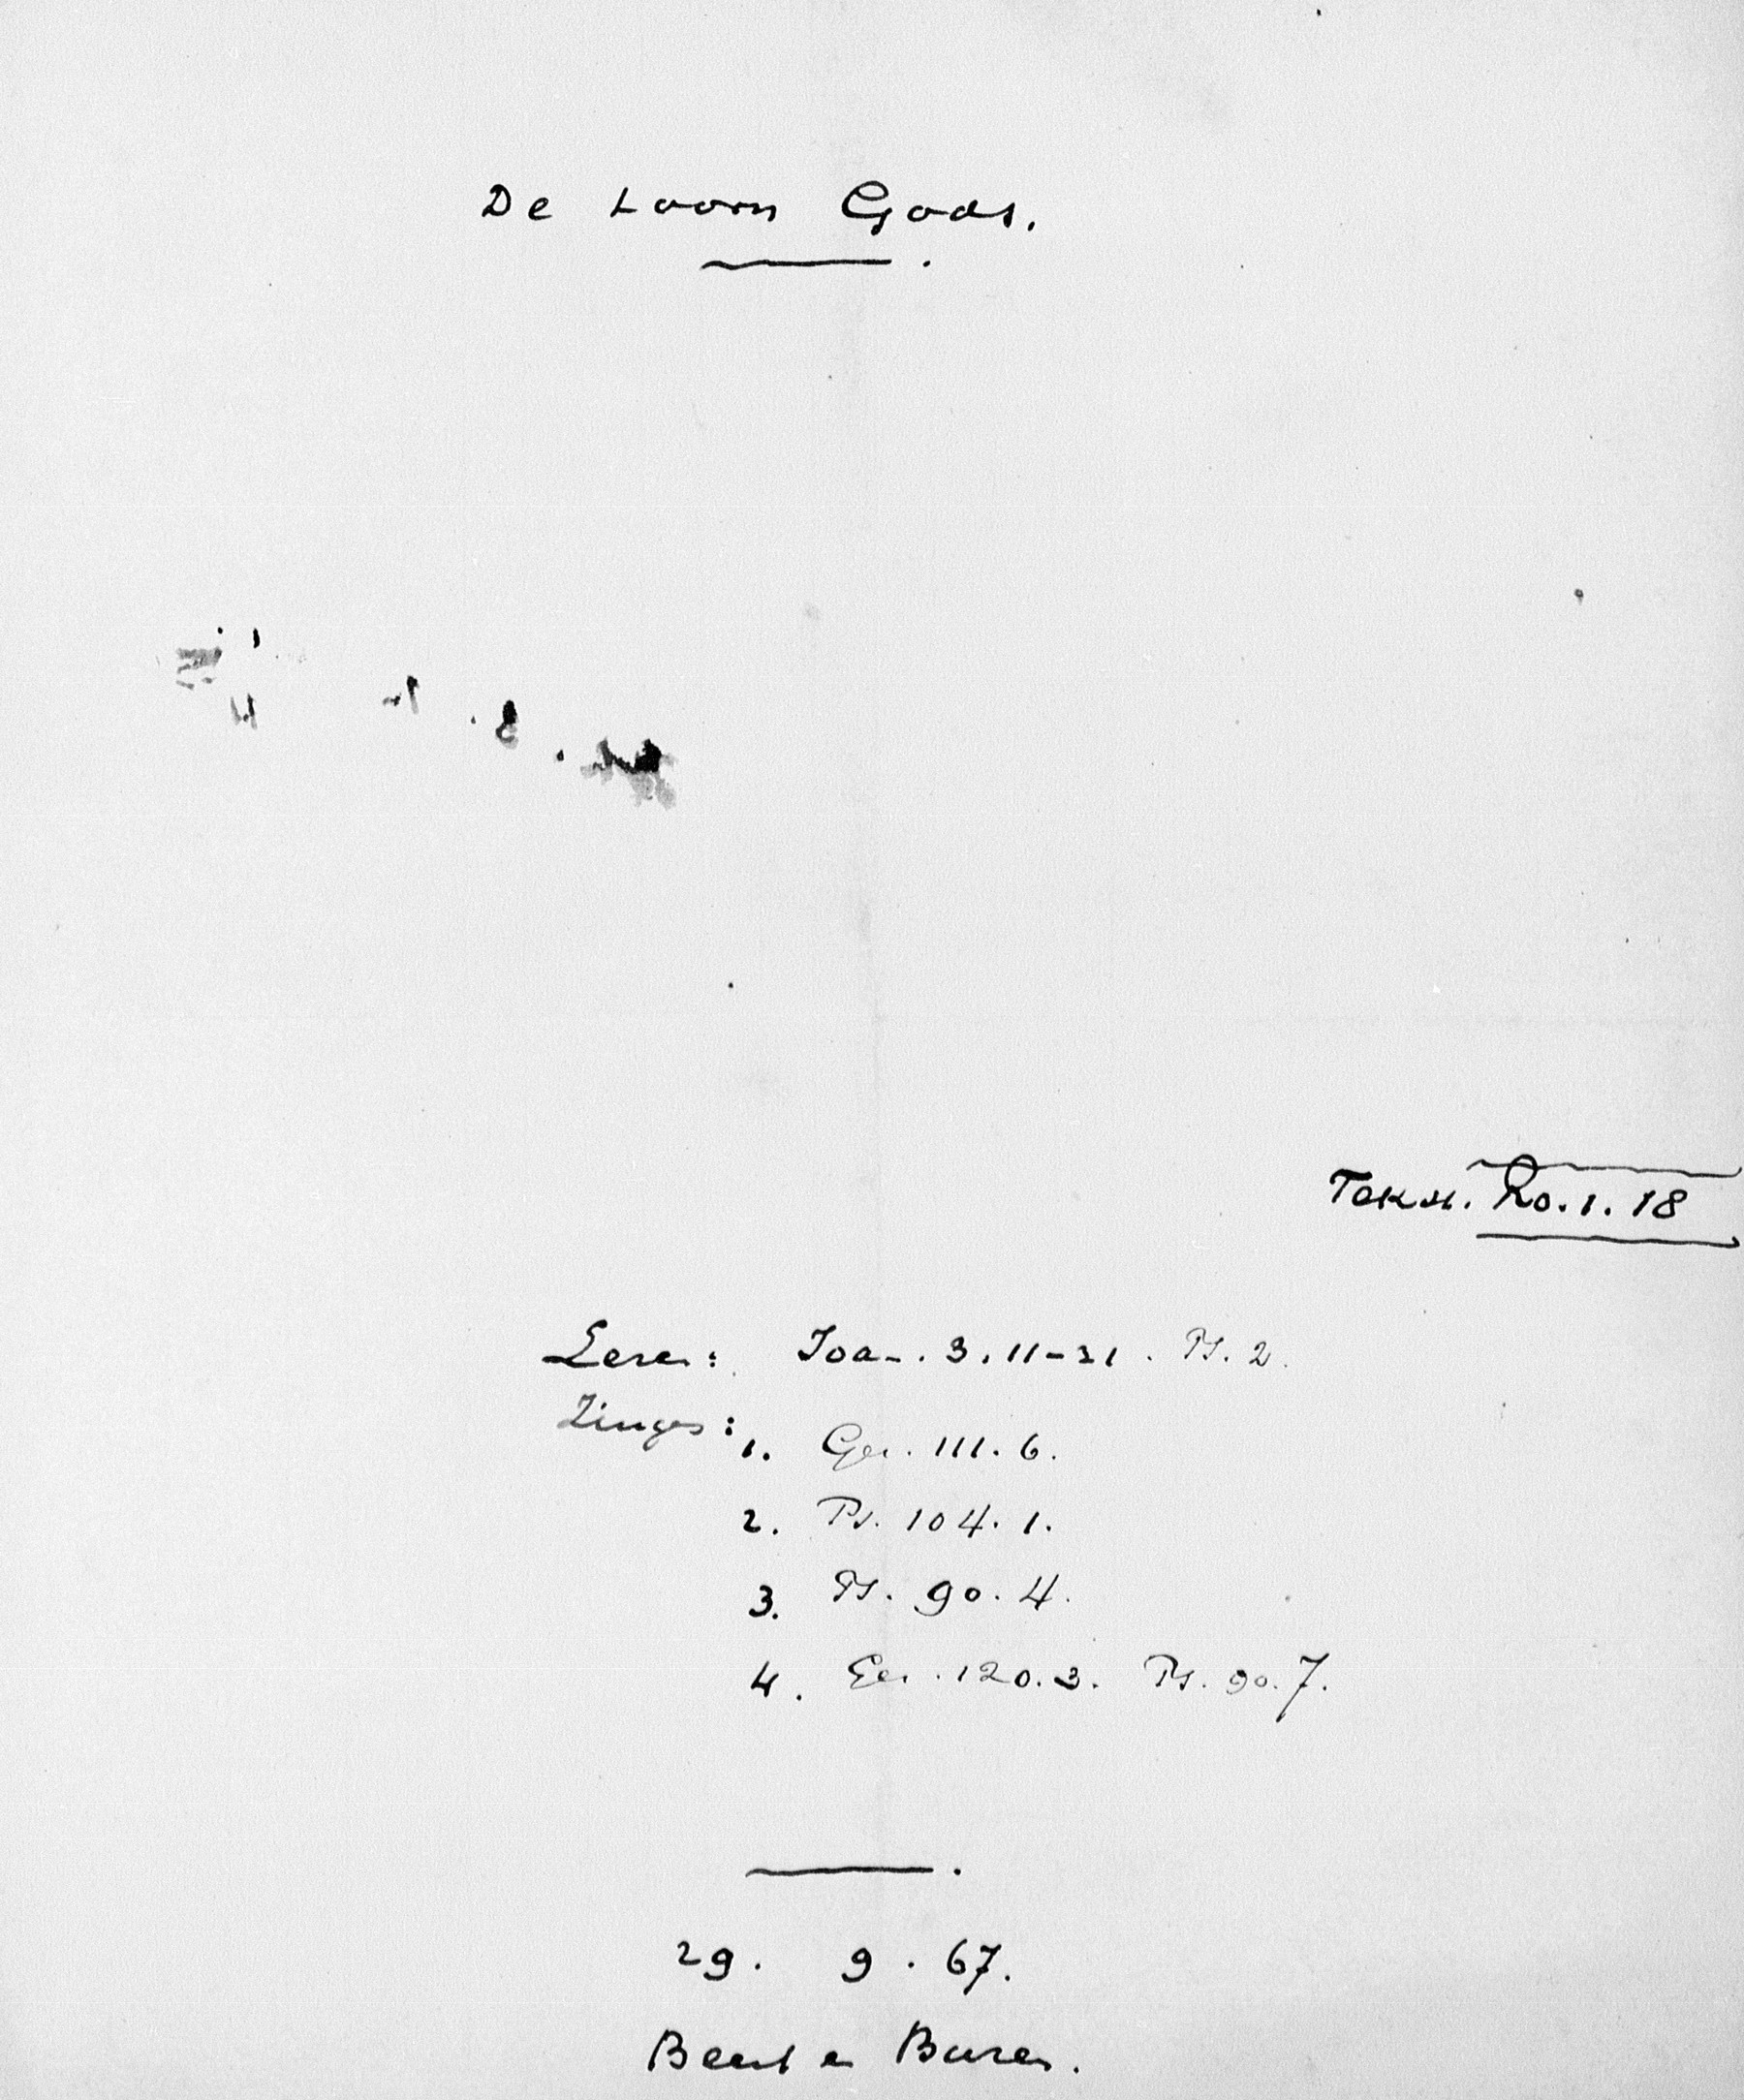 De toorn Gods.
Tekst. Ro. 1. 18
Lezen: Joan. 3. 11-21. Ps. 2.
Zingen:
1. Gez. 111. 6.
2. Ps. 104. 1.
3. Ps. 90. 4.
4. Gez. 120. 3. Ps. 90. 7.
29. 9. 67.
Beest en Buren.